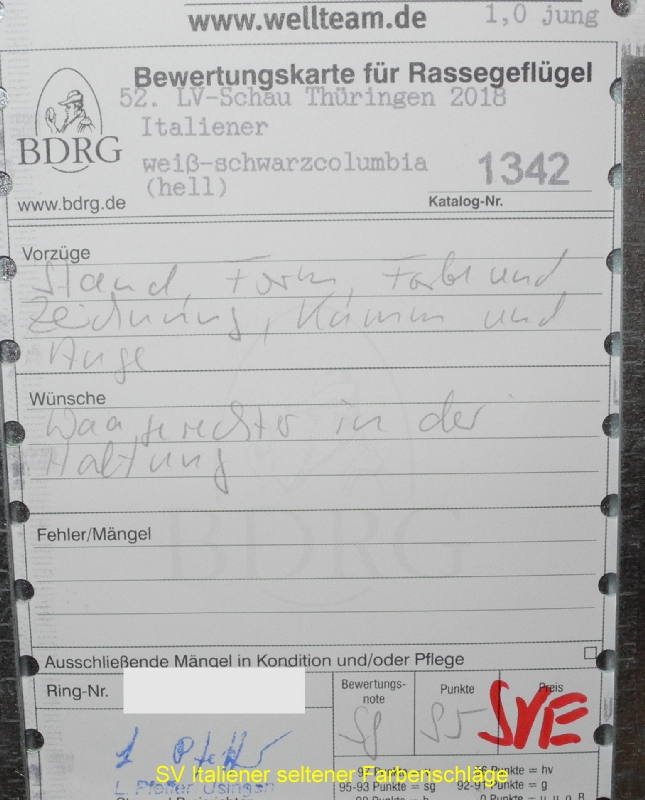 www.wellteam.de
1,0 jung
Bewertungskarte für Rassegeflügel
52. LV-Schau Thüringen 2018
Italiener
BDRG
weiß-schwarzcolumbia
(hell)
1342
www.bdrg.de
Katalog-Nr.
Vorzüge
Stand, Form, Farbe und
Zeichnung, Kamm und
Auge
Wünsche
Waagerechter in der
Haltung
BDRG
Fehler/Mängel
Ausschließende Mängel in Kondition und/oder Pflege
Ring-Nr.
Bewertungs-
note
Punkte
Preis
sg
95
SVE
L. Pfeiffer Usingen
SV Italiener seltener Farbenschläge
= hv
95-93 Punkte = sg
= g